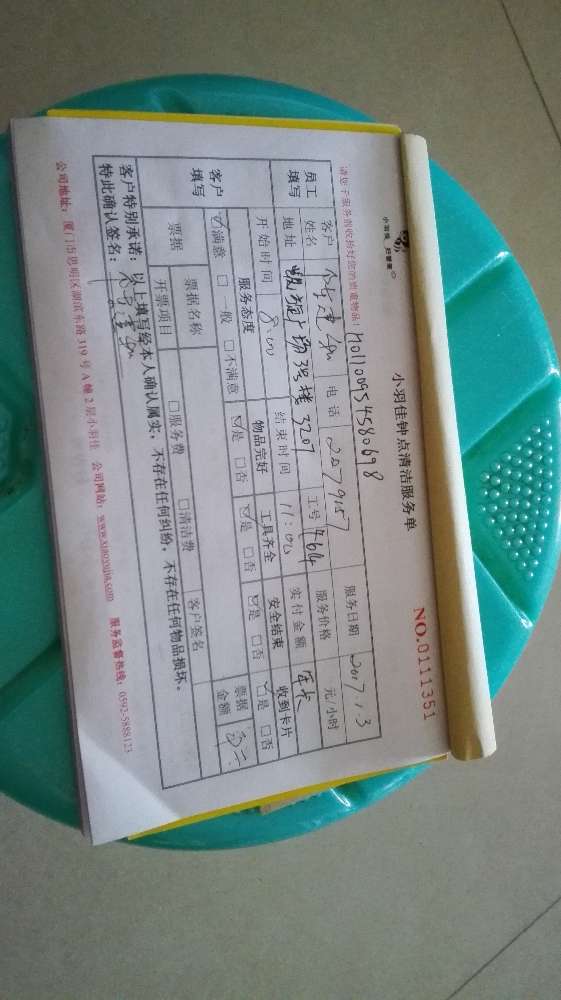 小羽佳 好管家
小羽佳钟点清洁服务单
NO.0111351
请您于服务前收拾好您的贵重物品! H01100954580698
员工填写 客户姓名 电话 2079157 服务日期 2017.1.3
地址 凯旋广场3号楼3207 工号 4614 服务价格 元/小时
开始时间 8:00 结束时间 11:00 实付金额 年卡
客户填写 服务态度 物品完好 工具齐全 安全结束 收到卡片
☑满意 □一般 □不满意 ☑是 □否 ☑是 □否 ☑是 □否 ☑是 □否
票据 票据名称 □服务费 □清洁费 客户签名 票据金额
开票项目
客户特别承诺:以上填写经本人确认属实,不存在任何纠纷,不存在任何物品损坏。
特此确认签名:
公司地址:厦门市思明区湖滨东路319号A幢2层小羽佳 公司网站:www.xiaoyujia.com 服务监督热线:0592-5888123